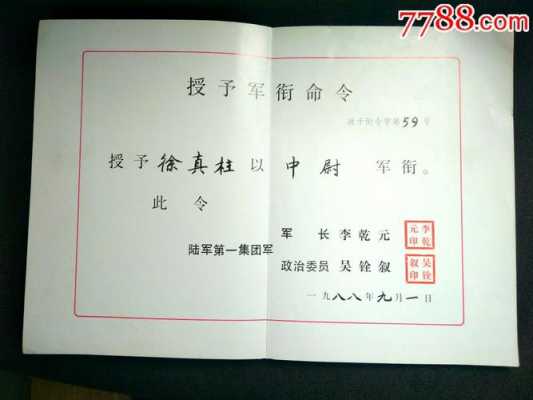 7788.com
授予军衔命令
政干衔令字第59号
授予徐真柱以中尉军衔。
此令
陆军第一集团军
军长李乾元
李乾元印
政治委员吴铨叙
吴铨叙印
一九八八年九月一日